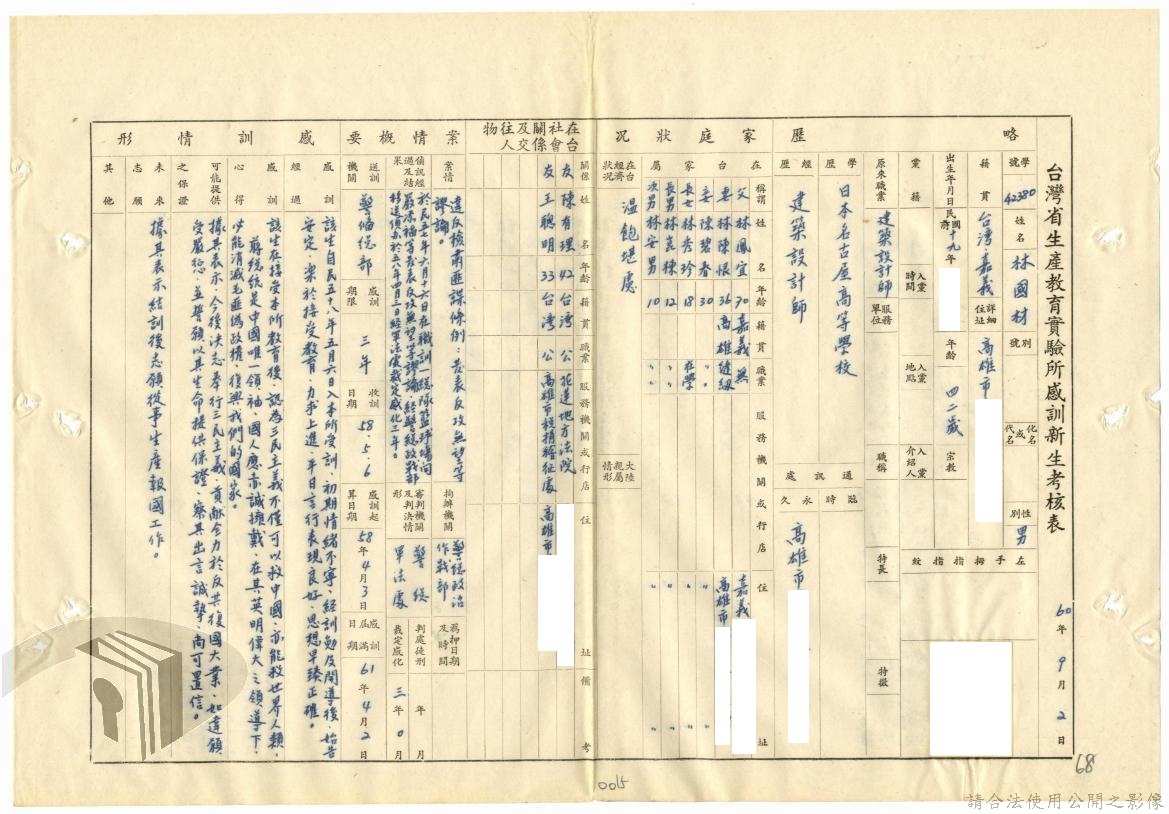 台灣省生產教育實驗所感訓新生考核表
60年9月2日
略歷
學號 42380 姓名 林國材 別號 化名或代名 性別 男
籍貫 台灣嘉義 詳細住址 高雄市
出生年月日 民國前 十九年 年齡 四二歲 宗教
左手拇指指紋
黨籍 入黨時間 入黨地點 入黨介紹人
原來職業 建築設計師 服務單位 職稱 特長 特徵
學歷 日本名古屋高等學校
經歷 建築設計師
通訊處 臨時永久 高雄市
家庭狀況
在台家屬 稱謂 姓名 年齡 籍貫 職業 服務機關或行店 住址
父 林鳳宜 70 嘉義 無 嘉義
母 林陳恨 36 高雄 縫紉 高雄市
妻 陳碧春 30 〃 〃 〃
長女 林秀珍 18 〃 在學 〃
長男 林 12 〃 〃 〃
次男 林安男 10 〃 〃 〃 〃
在台經濟狀況 溫飽堪慮
大陸親屬情形
在台社會關係及交往人物
關係 姓名 年齡 籍貫 職業 服務機關或行店 住址 備考
友 陳有理 42 台灣 公 花蓮地方法院
友 王聰明 33 台灣 公 高雄市稅捐稽征處 高雄市
案情概要
案情 違反檢肅匪諜條例:發表反攻無望等謬論。
拘辦機關 警總政治作戰部
羈押日期及時間
偵訊經過及結果 於民五七年六月十六日在職訓一總隊籃球場向嚴 等發表反攻無望等謬論,經警總政戰部移送偵辦於五八年四月三日經軍法處裁定感化三年。
審判機關及判決情形 警總軍法處
判處徒刑 年 月
裁定感化 三年0月
送訓機關 警備總部
感訓期限 三年
收訓日期 58.5.6
感訓起算日期 58年4月3日
感訓屆滿日期 61年4月2日
感訓情形
感訓經過 該生自民五十八年五月六日入本所受訓,初期情緒不寧,經訓勉及開導後,始告安定,樂於接受教育,力求上進,平日言行表現良好,思想早臻正確。
感訓心得 該生在接受本所教育後,認為三民主義不僅可以救中國,亦能救世界人類,蔣總統是中國唯一領袖,國人應赤誠擁戴,在其英明偉大之領導下,必能消滅毛匪偽政權,復興我們的國家。
可能提供之保證 據其表示,今後決志奉行三民主義,貢獻全力於反共復國大業,如違願受嚴懲,並誓願以其生命提供保證,察其出言誠摯,尚可置信。
未來志願 據其表示結訓後志願從事生產報國工作。
其他
68
0015
請合法使用公開之影像